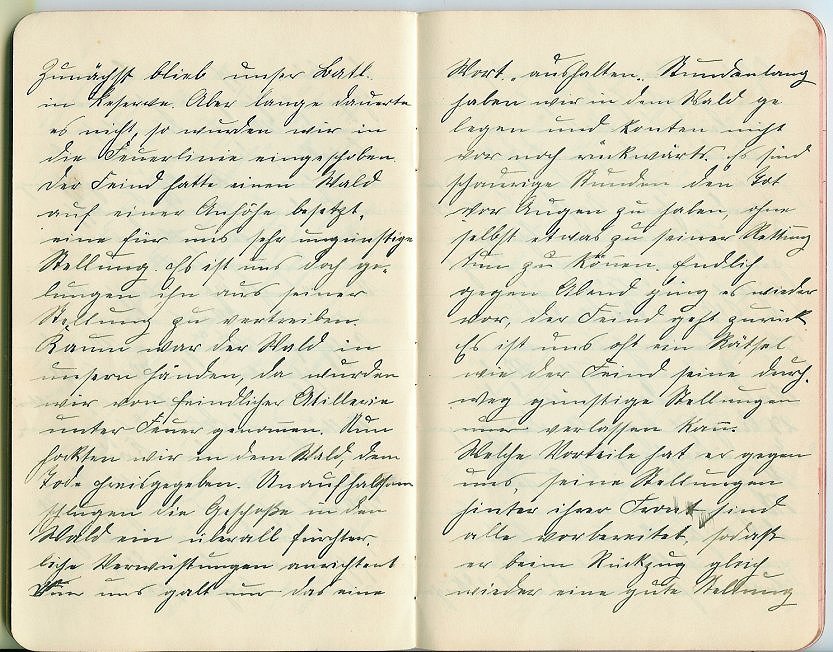 Zunächst blieb unser Batl.
in Reserve. Aber lange dauerte
es nicht, so wurden wir in
die Feuerlinie eingeschoben.
Der Feind hatte einen Wald
auf einer Anhöhe besetzt,
eine für uns sehr ungünstige
Stellung. Es ist uns doch ge-
lungen ihn aus seiner
Stellung zu vertreiben.
Kaum war der Wald in
unsern Händen, da wurden
wir von feindlicher Atillerie
unter Feuer genommen. Nun
hockten wir in dem Wald, dem
Tode preisgegeben. Unaufhaltsam
schlugen die Geschoße in den
Wald ein überall fürchter-
liche Verwüstungen anrichtent
Für uns galt nur das eine
Wort „aushalten„ Stundenlang
haben wir in dem Wald ge
legen und konten nicht
vor noch rückwärts. Es sind
schaurige Stunden den Tot
vor Augen zu haben, ohne
selbst etwas zu seiner Rettung
tun zu könen. Endlich
gegen Abend ging es wieder
vor, der Feind geht zurück
Es ist uns oft ein Rätsel
wie der Feind seine durch-
weg günstige Stellungen
nur verlassen kan.
Welche Vorteile hat er gegen
uns, seine Stellungen
hinter ihrer Front sind
alle vorbereitet, sodaß
er beim Rückzug gleich
wieder eine gute Stellung